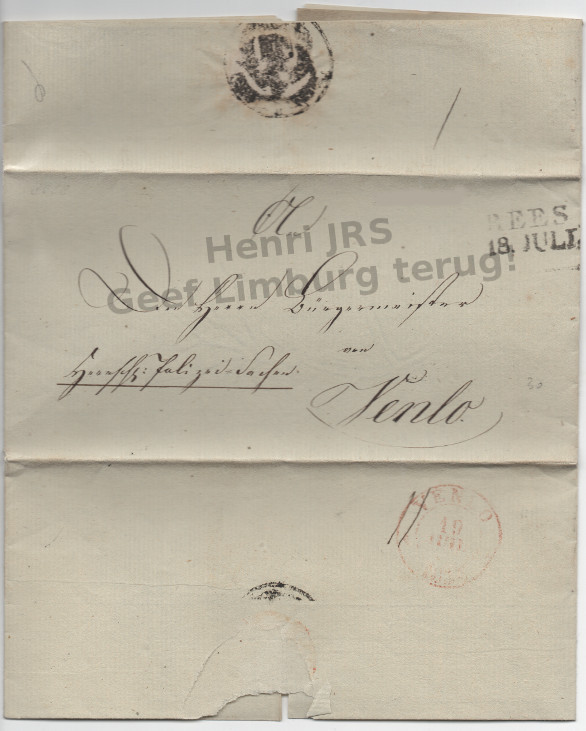 An
REES
18. JULI.
Henri JRS
Geef Limburg terug!
Den Herrn Bürgermeister
von
Herrschl: Polizei-Sachen.
Venlo.
30
VENLO
19